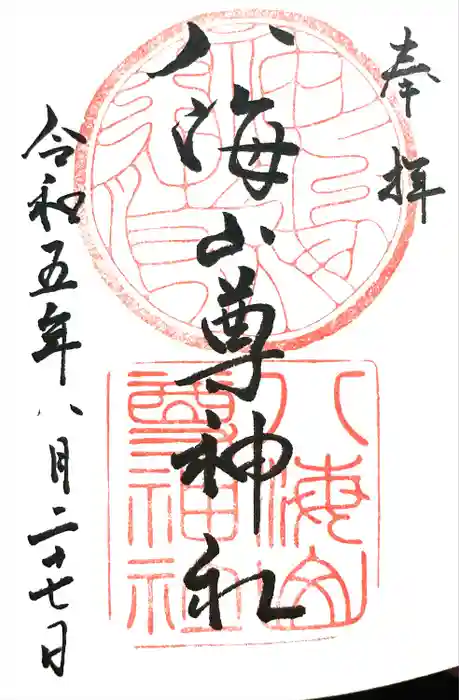 奉拝
八海山尊神社
令和五年八月二十七日
八海山
尊神社